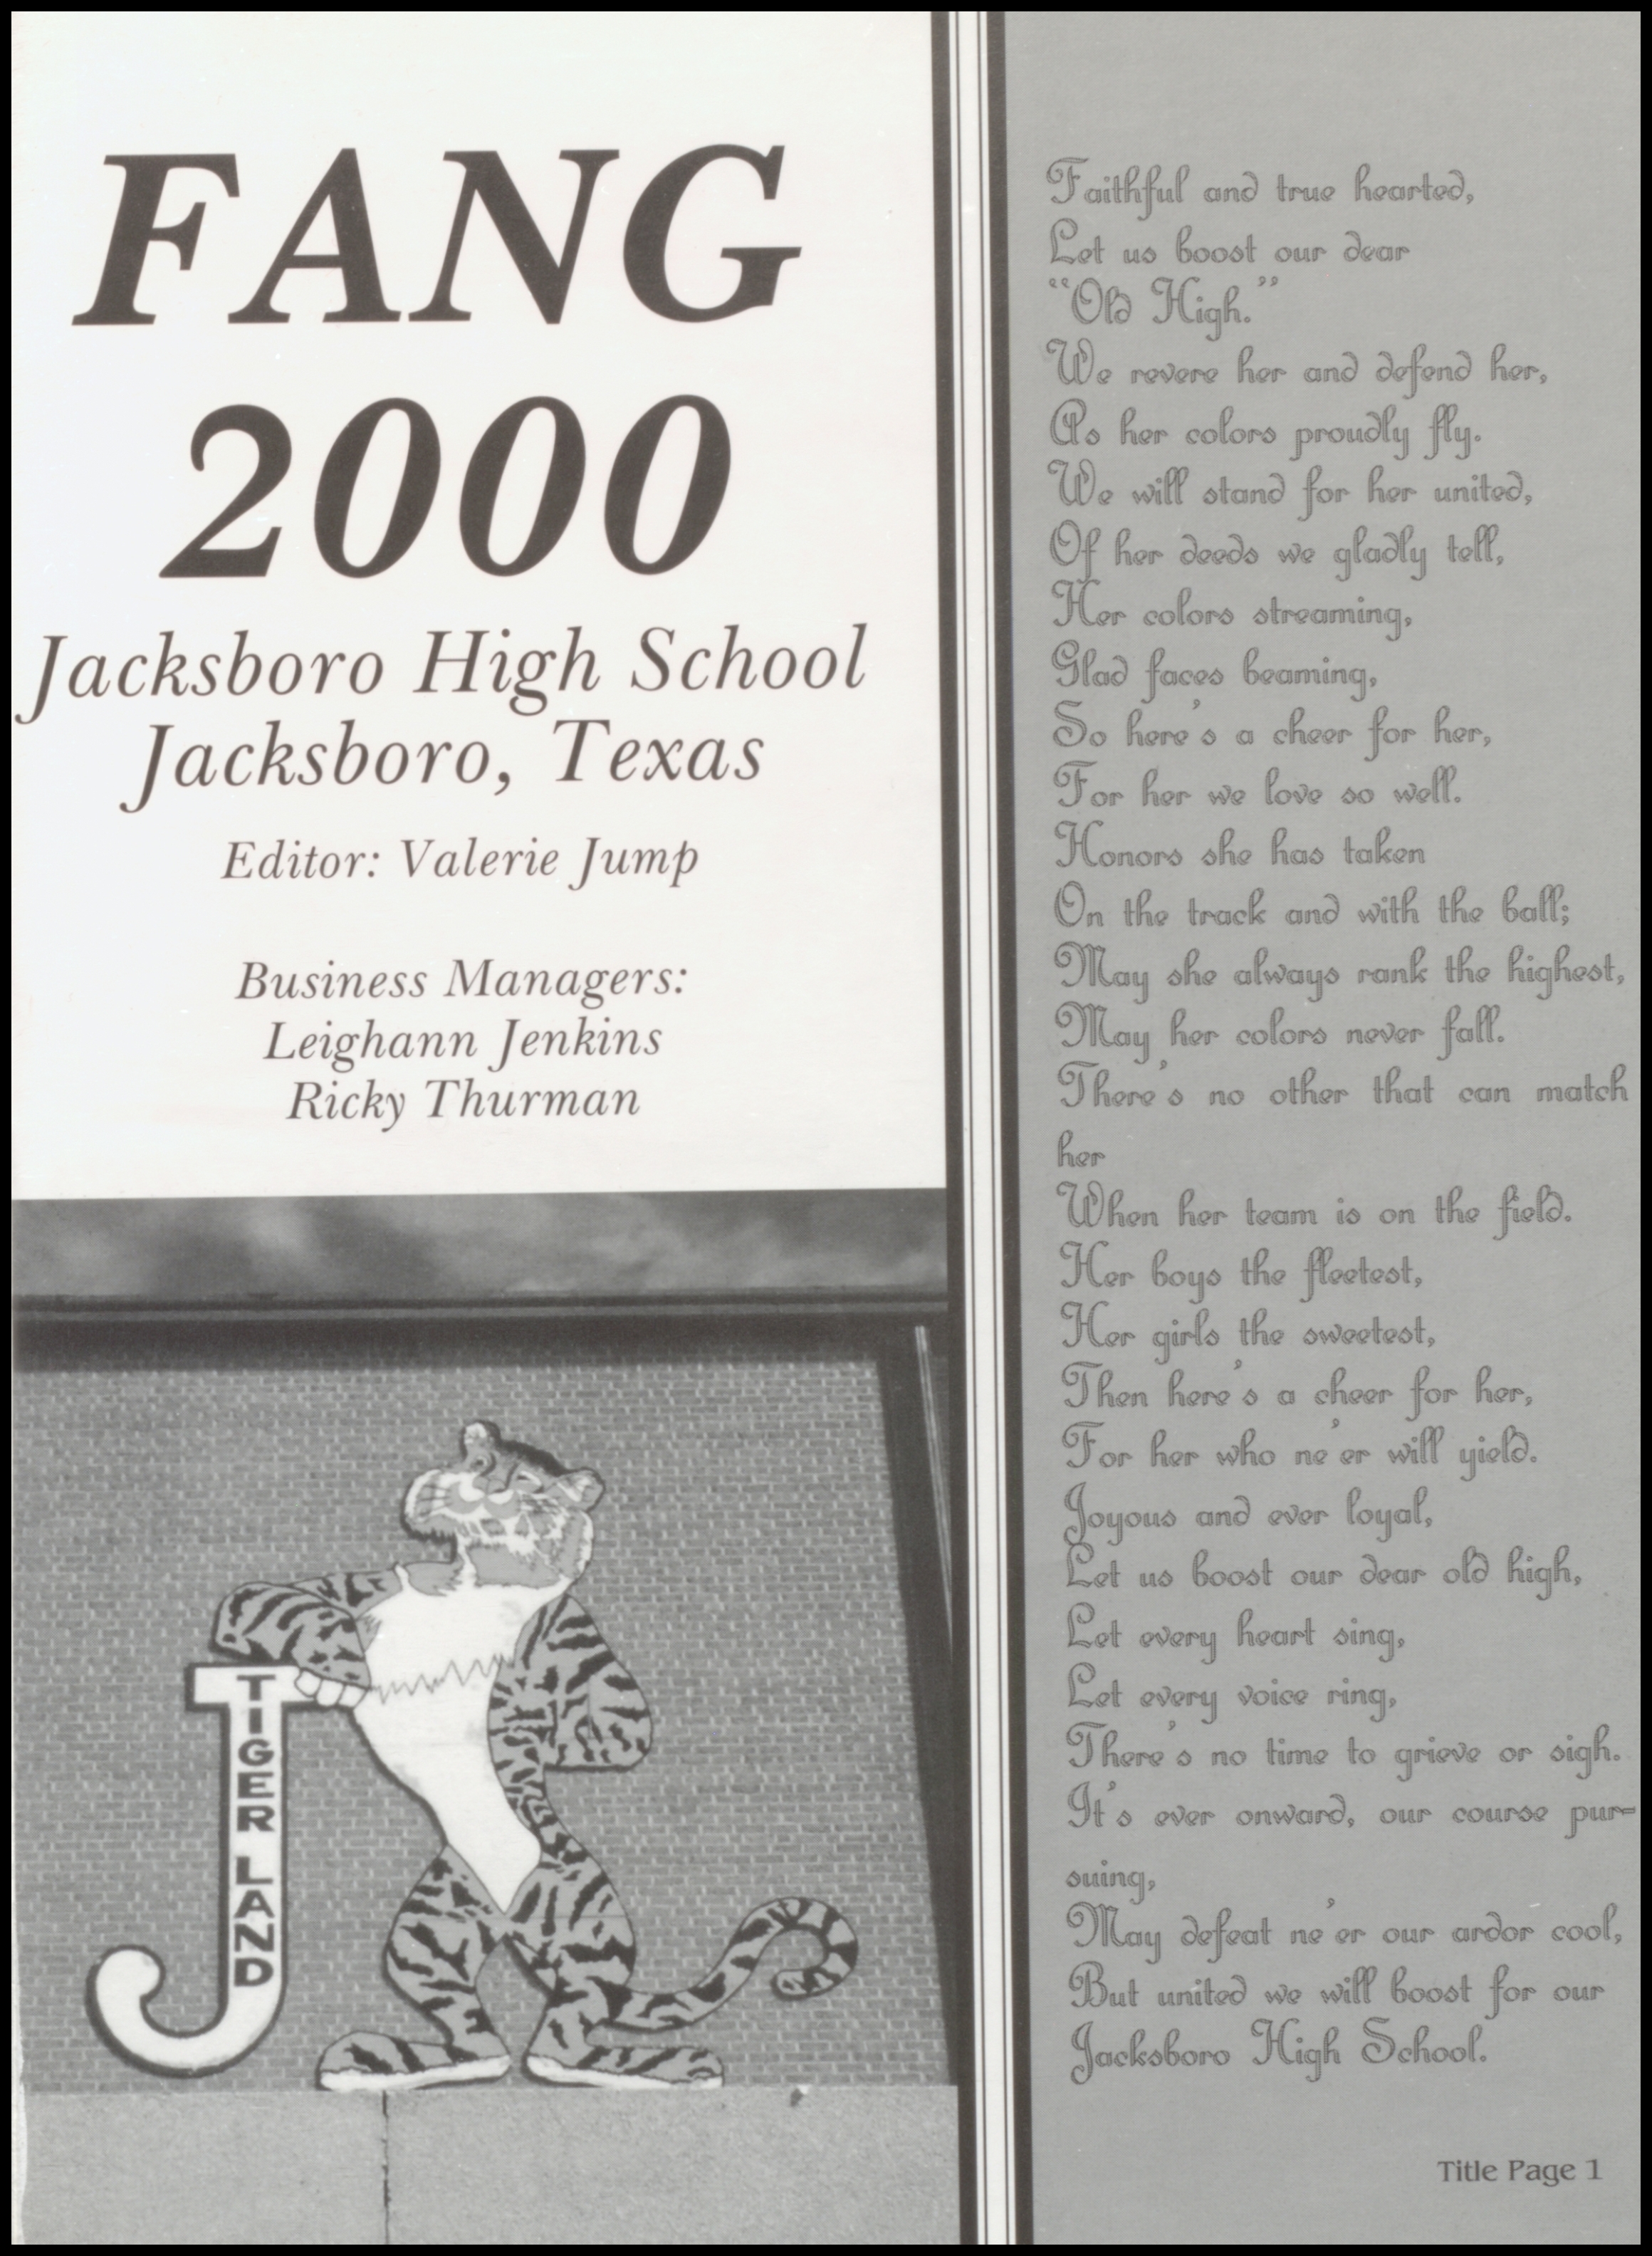 FANG
2000
Jacksboro High School
Jacksboro, Texas
Editor: Valerie Jump
Business Managers:
Leighann Jenkins
Ricky Thurman
TIGER LAND
Faithful and true hearted,
Let us boost our dear
“Old High.”
We revere her and defend her,
As her colors proudly fly.
We will stand for her united,
Of her deeds we gladly tell,
Her colors streaming,
Glad faces beaming,
So here's a cheer for her,
For her we love so well.
Honors she has taken
On the track and with the ball;
May she always rank the highest,
May her colors never fall.
There's no other that can match
her
When her team is on the field.
Her boys the fleetest,
Her girls the sweetest,
Then here's a cheer for her,
For her who ne'er will yield.
Joyous and ever loyal,
Let us boost our dear old high,
Let every heart sing,
Let every voice ring,
There's no time to grieve or sigh.
It's ever onward, our course pur-
suing,
May defeat ne'er our ardor cool,
But united we will boost for our
Jacksboro High School.
Title Page 1